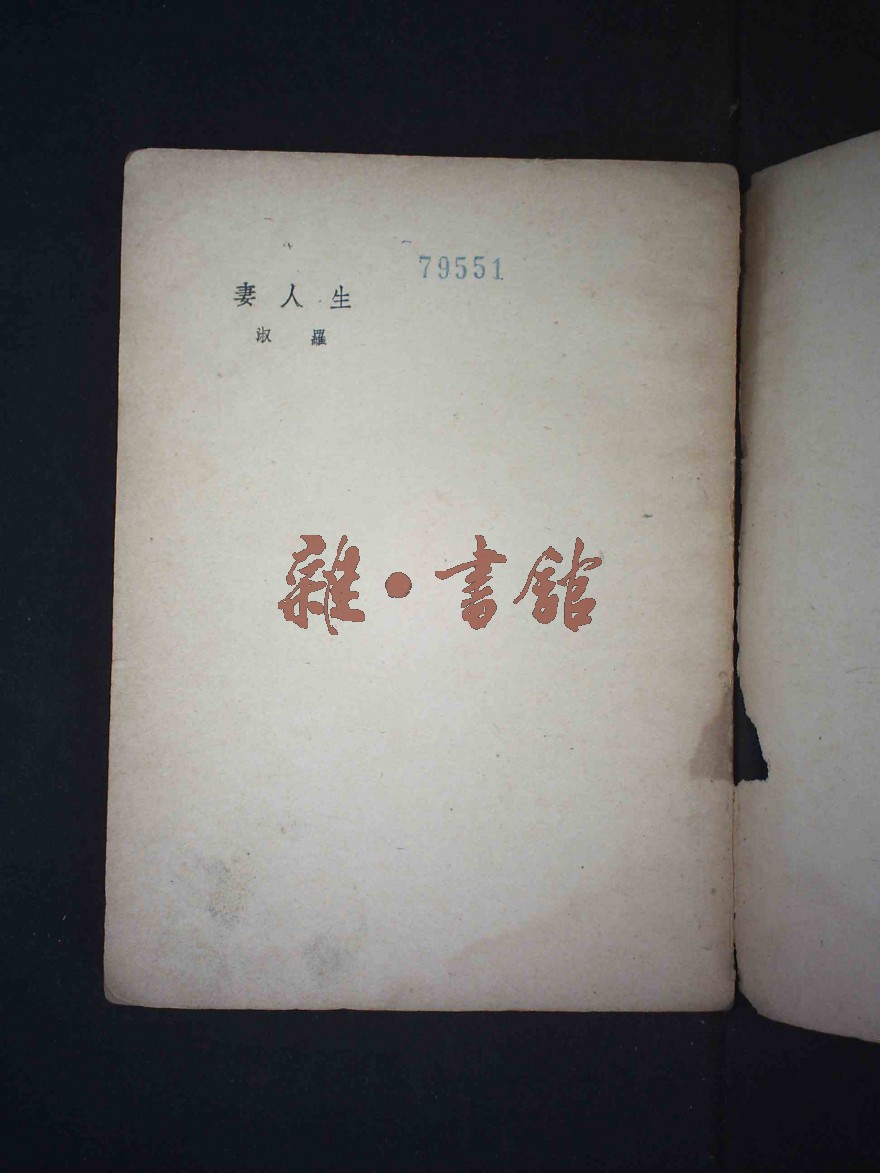 79551
生人妻
羅淑
雜·書館